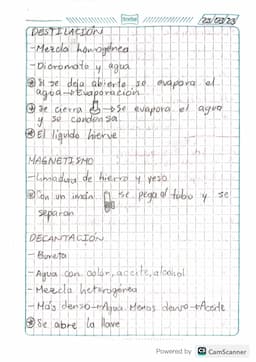 23/03/23
DESTILACIÓN
-Mezcla homogénea
-Dicromato y agua
Si se deja abierto se evapora el
agua→Evaporación
Se cierra →Se evapora el agua
y se condensa
El líquido hierve
MAGNETISMO
-Limadura de hierro y yeso
Con un imán se pega al tubo y se
separan
DECANTACIÓN
-Bureta
-Agua con color, aceite, alcohol
-Mezcla heterogénea
-Más denso→Agua Menos denso→Aceite
Se abre la llave
Powered by CS CamScanner